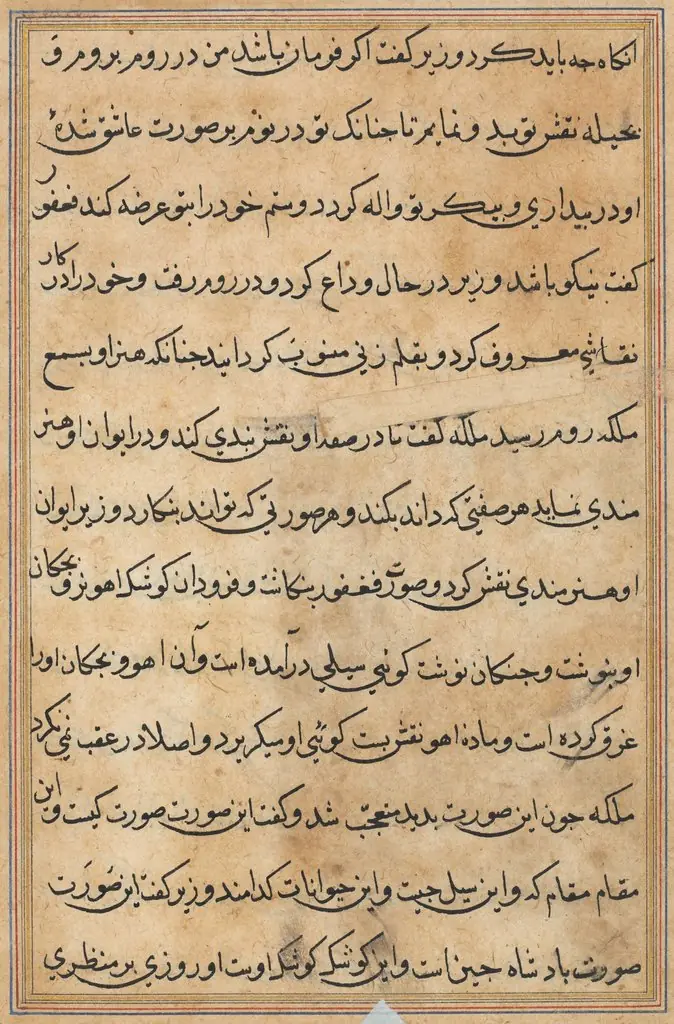 انکاه جه باید کرد وزیر کفت اکر فرمان باشد من در روم بروم و
بحیله نقش تو بدو نمایم تا جنانک تو در نوم بر صورت عاشق شدهٔ
او در بیداری و بیکر تو واله کردد و ستم خود را بتو عرضه کند فغفور
کفت نیکو باشد وزیر در حال وداع کرد و در روم رفت و خود را در کار
نقاشی معروف کرد و بقلم زنی منسوب کردانید جنانکه هنر او بسمع
ملکه روم رسید ملکه کفت تا در صفه او نقش بندی کند و در ایوان او هنر
مندی نماید هر صفتی که داند بکند و هر صورتی که تواند بنکارد وزیر ایوان
او هنرمندی نقش کرد و صورت فغفور بنکاشت و فرود ان کوشک اهو نر و بجکان
او بنوشت و جنکان نوشت کوئی سیلی درآمده است وآن اهو و بجکان او را
غرق کرده است و ماده اهو نقش بست کوئی او میکریزد و اصلا در عقب نمی نکرد
ملکه جون این صورت بدید متعجب شد و کفت این صورت صورت کیست و این
مقام مقام که و این سیل جیست و این حیوانات کدامند وزیر کفت این صورت
صورت بادشاه جین است و این کوشک کوشک اوست او روزی بر منظری